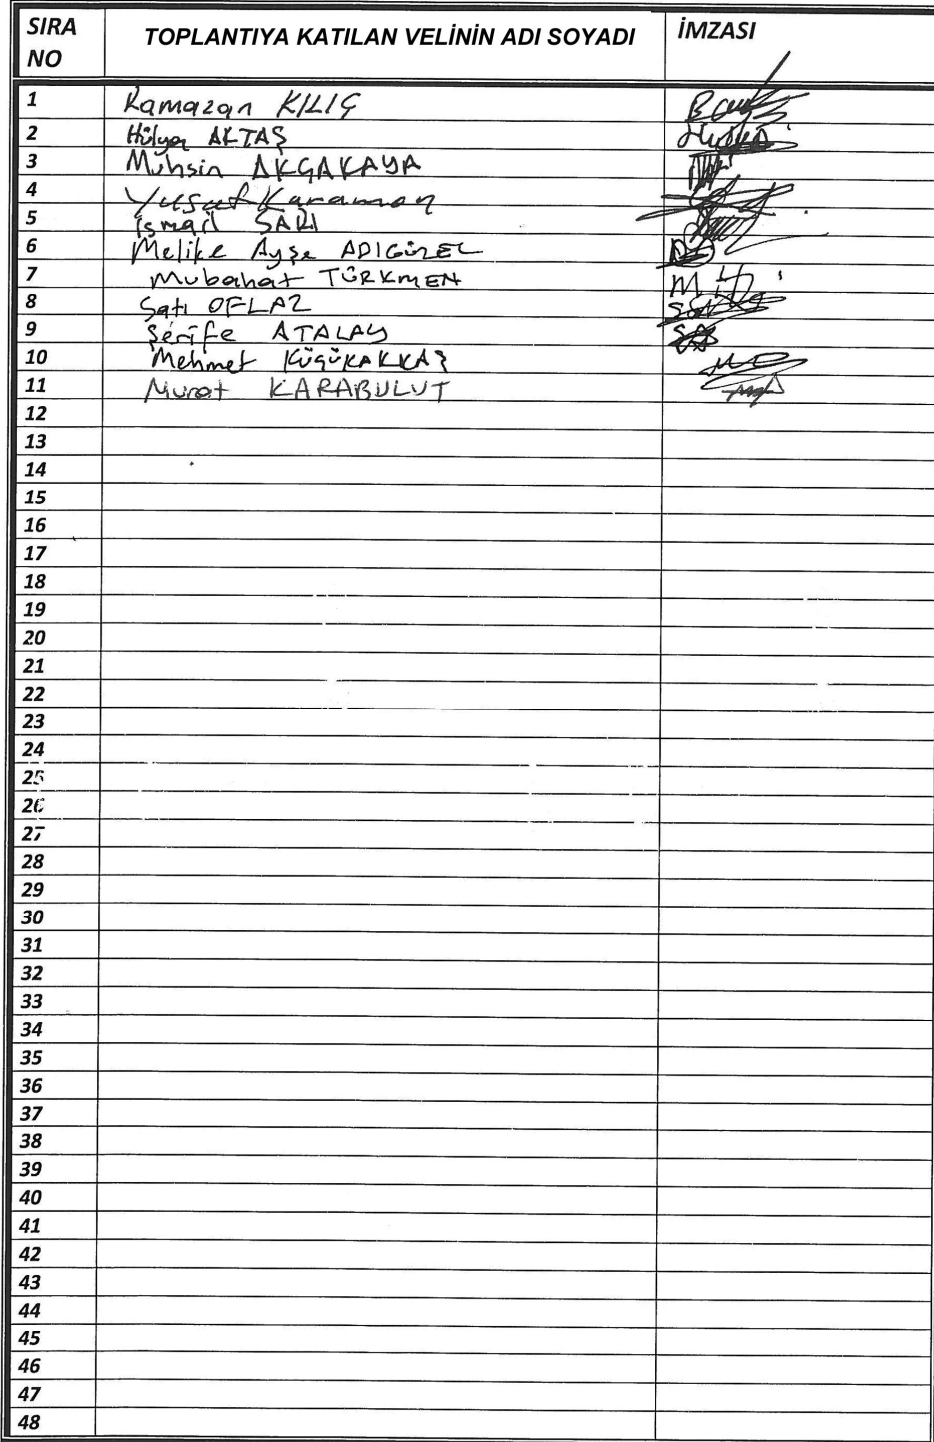 SIRA NO TOPLANTIYA KATILAN VELİNİN ADI SOYADI İMZASI
1 Ramazan KILIÇ
2 Hülya AKTAŞ
3 Muhsin AKÇAKAYA
4 Yusuf Karaman
5 İsmail SARI
6 Melike Ayşe ADIGÜZEL
7 Mubahat TÜRKMEN
8 Satı OFLAZ
9 Şerife ATALAY
10 Mehmet KÜÇÜKAKKAŞ
11 Murat KARABULUT
12
13
14
15
16
17
18
19
20
21
22
23
24
25
26
27
28
29
30
31
32
33
34
35
36
37
38
39
40
41
42
43
44
45
46
47
48